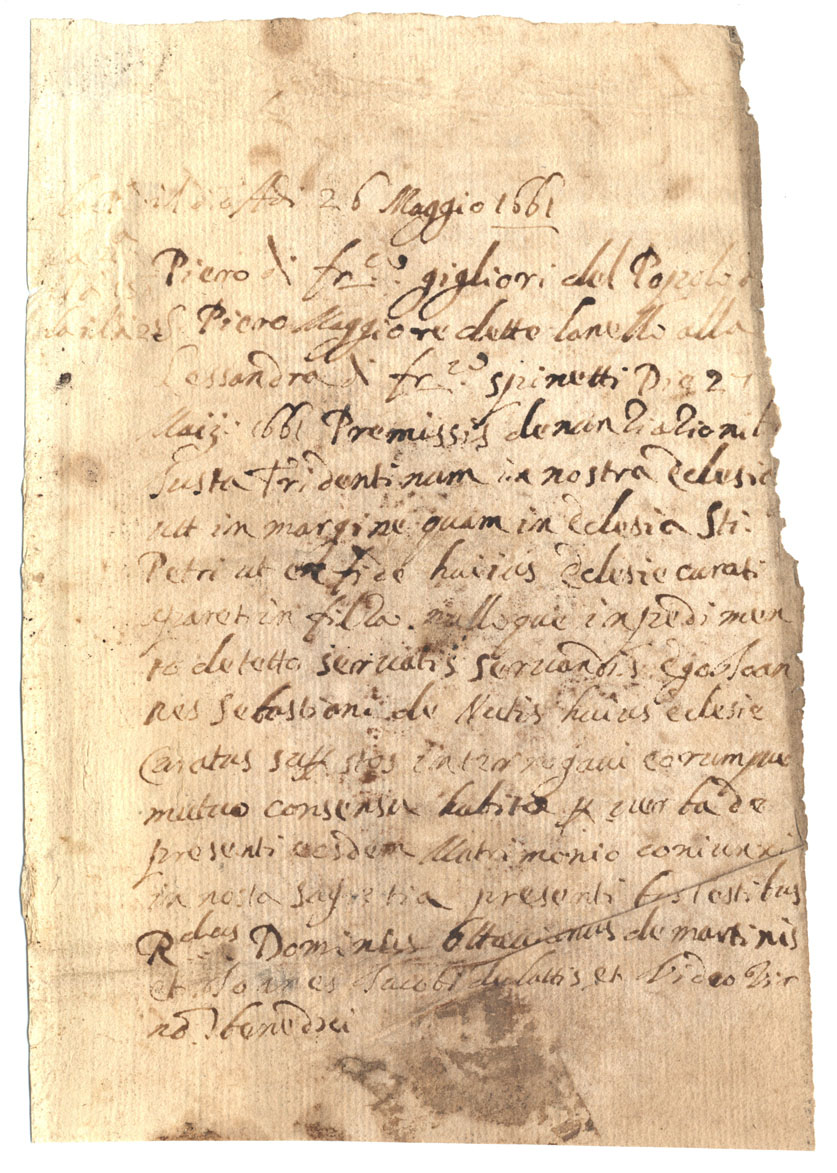 Adi 26 Maggio 1661
Piero di fr.co gigliori del Popolo
S. Piero Maggiore dette lanello alla
Lessandra di fr.co spinetti Die 27
Maij 1661 Premissis denuntiationib
Iusta Tridentinum in nostra Eclesia
ut in margine quam in Eclesia Sti.
Petri ut ex fide huius Eclesie curati
aparet in filza. nulloque inpedimen
to detetto servatis servandis Ego Ioan
nes Sebastiani de Nutis huius eclesie
Curatus interrogavi eorumque
mutuo consensu habito p verba de
presenti eosdem Matrimonio coniunxi
in nosta presentibus testibus
R.dus Dominus ottavianus de martinis
et Ioannes Iacobi et
benedixi